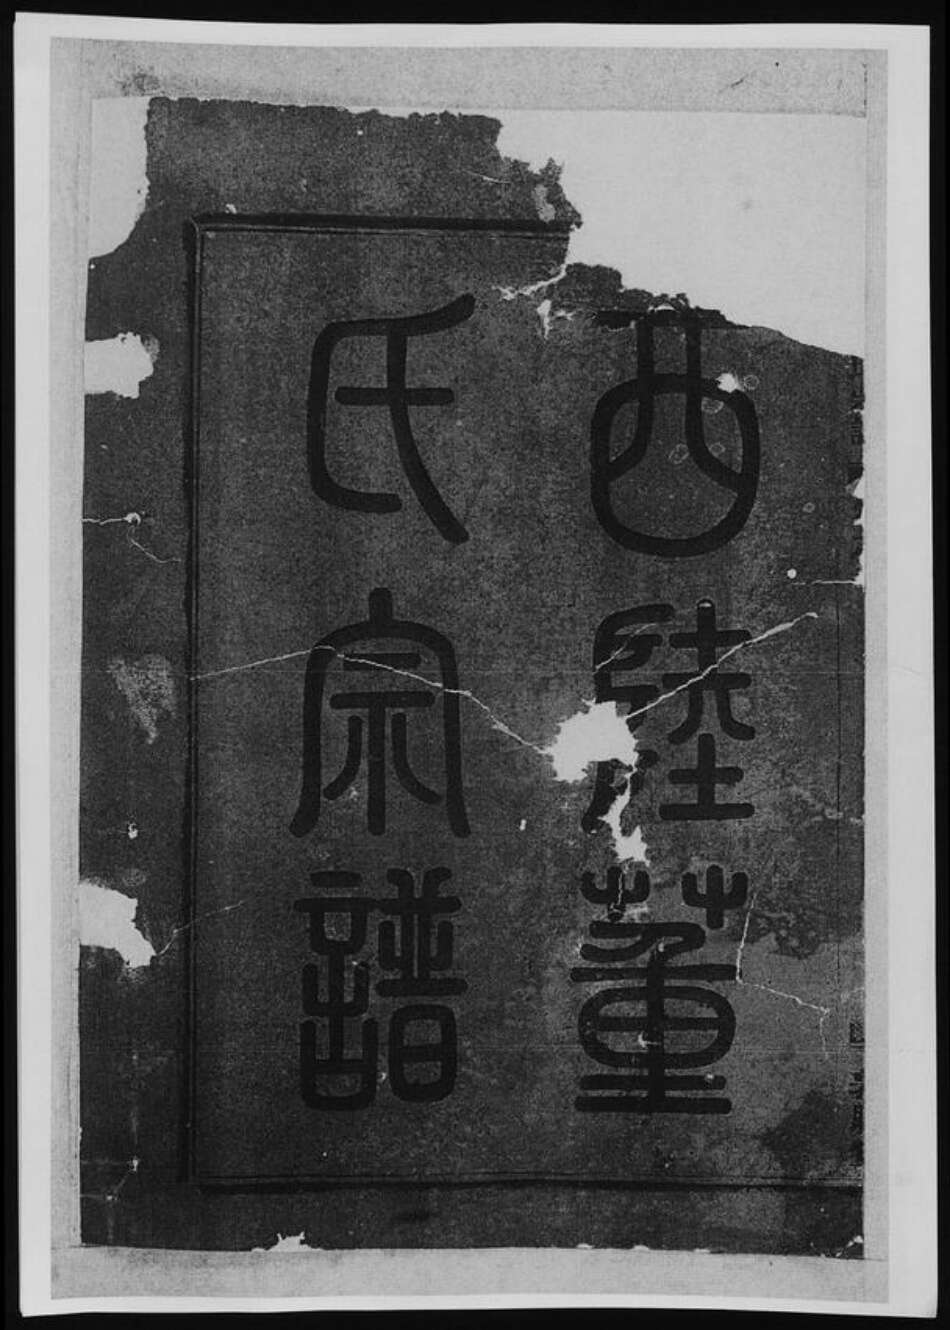 西陸董
氏宗譜